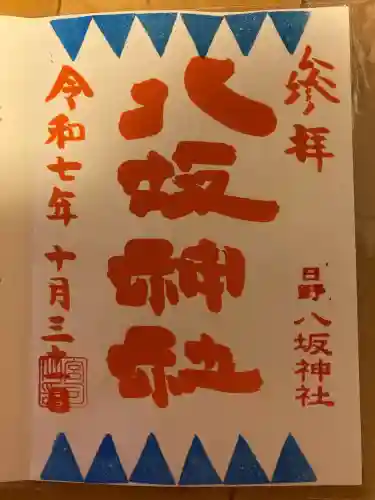 参拝
日野八坂神社
八坂神社
令和七年十月三日